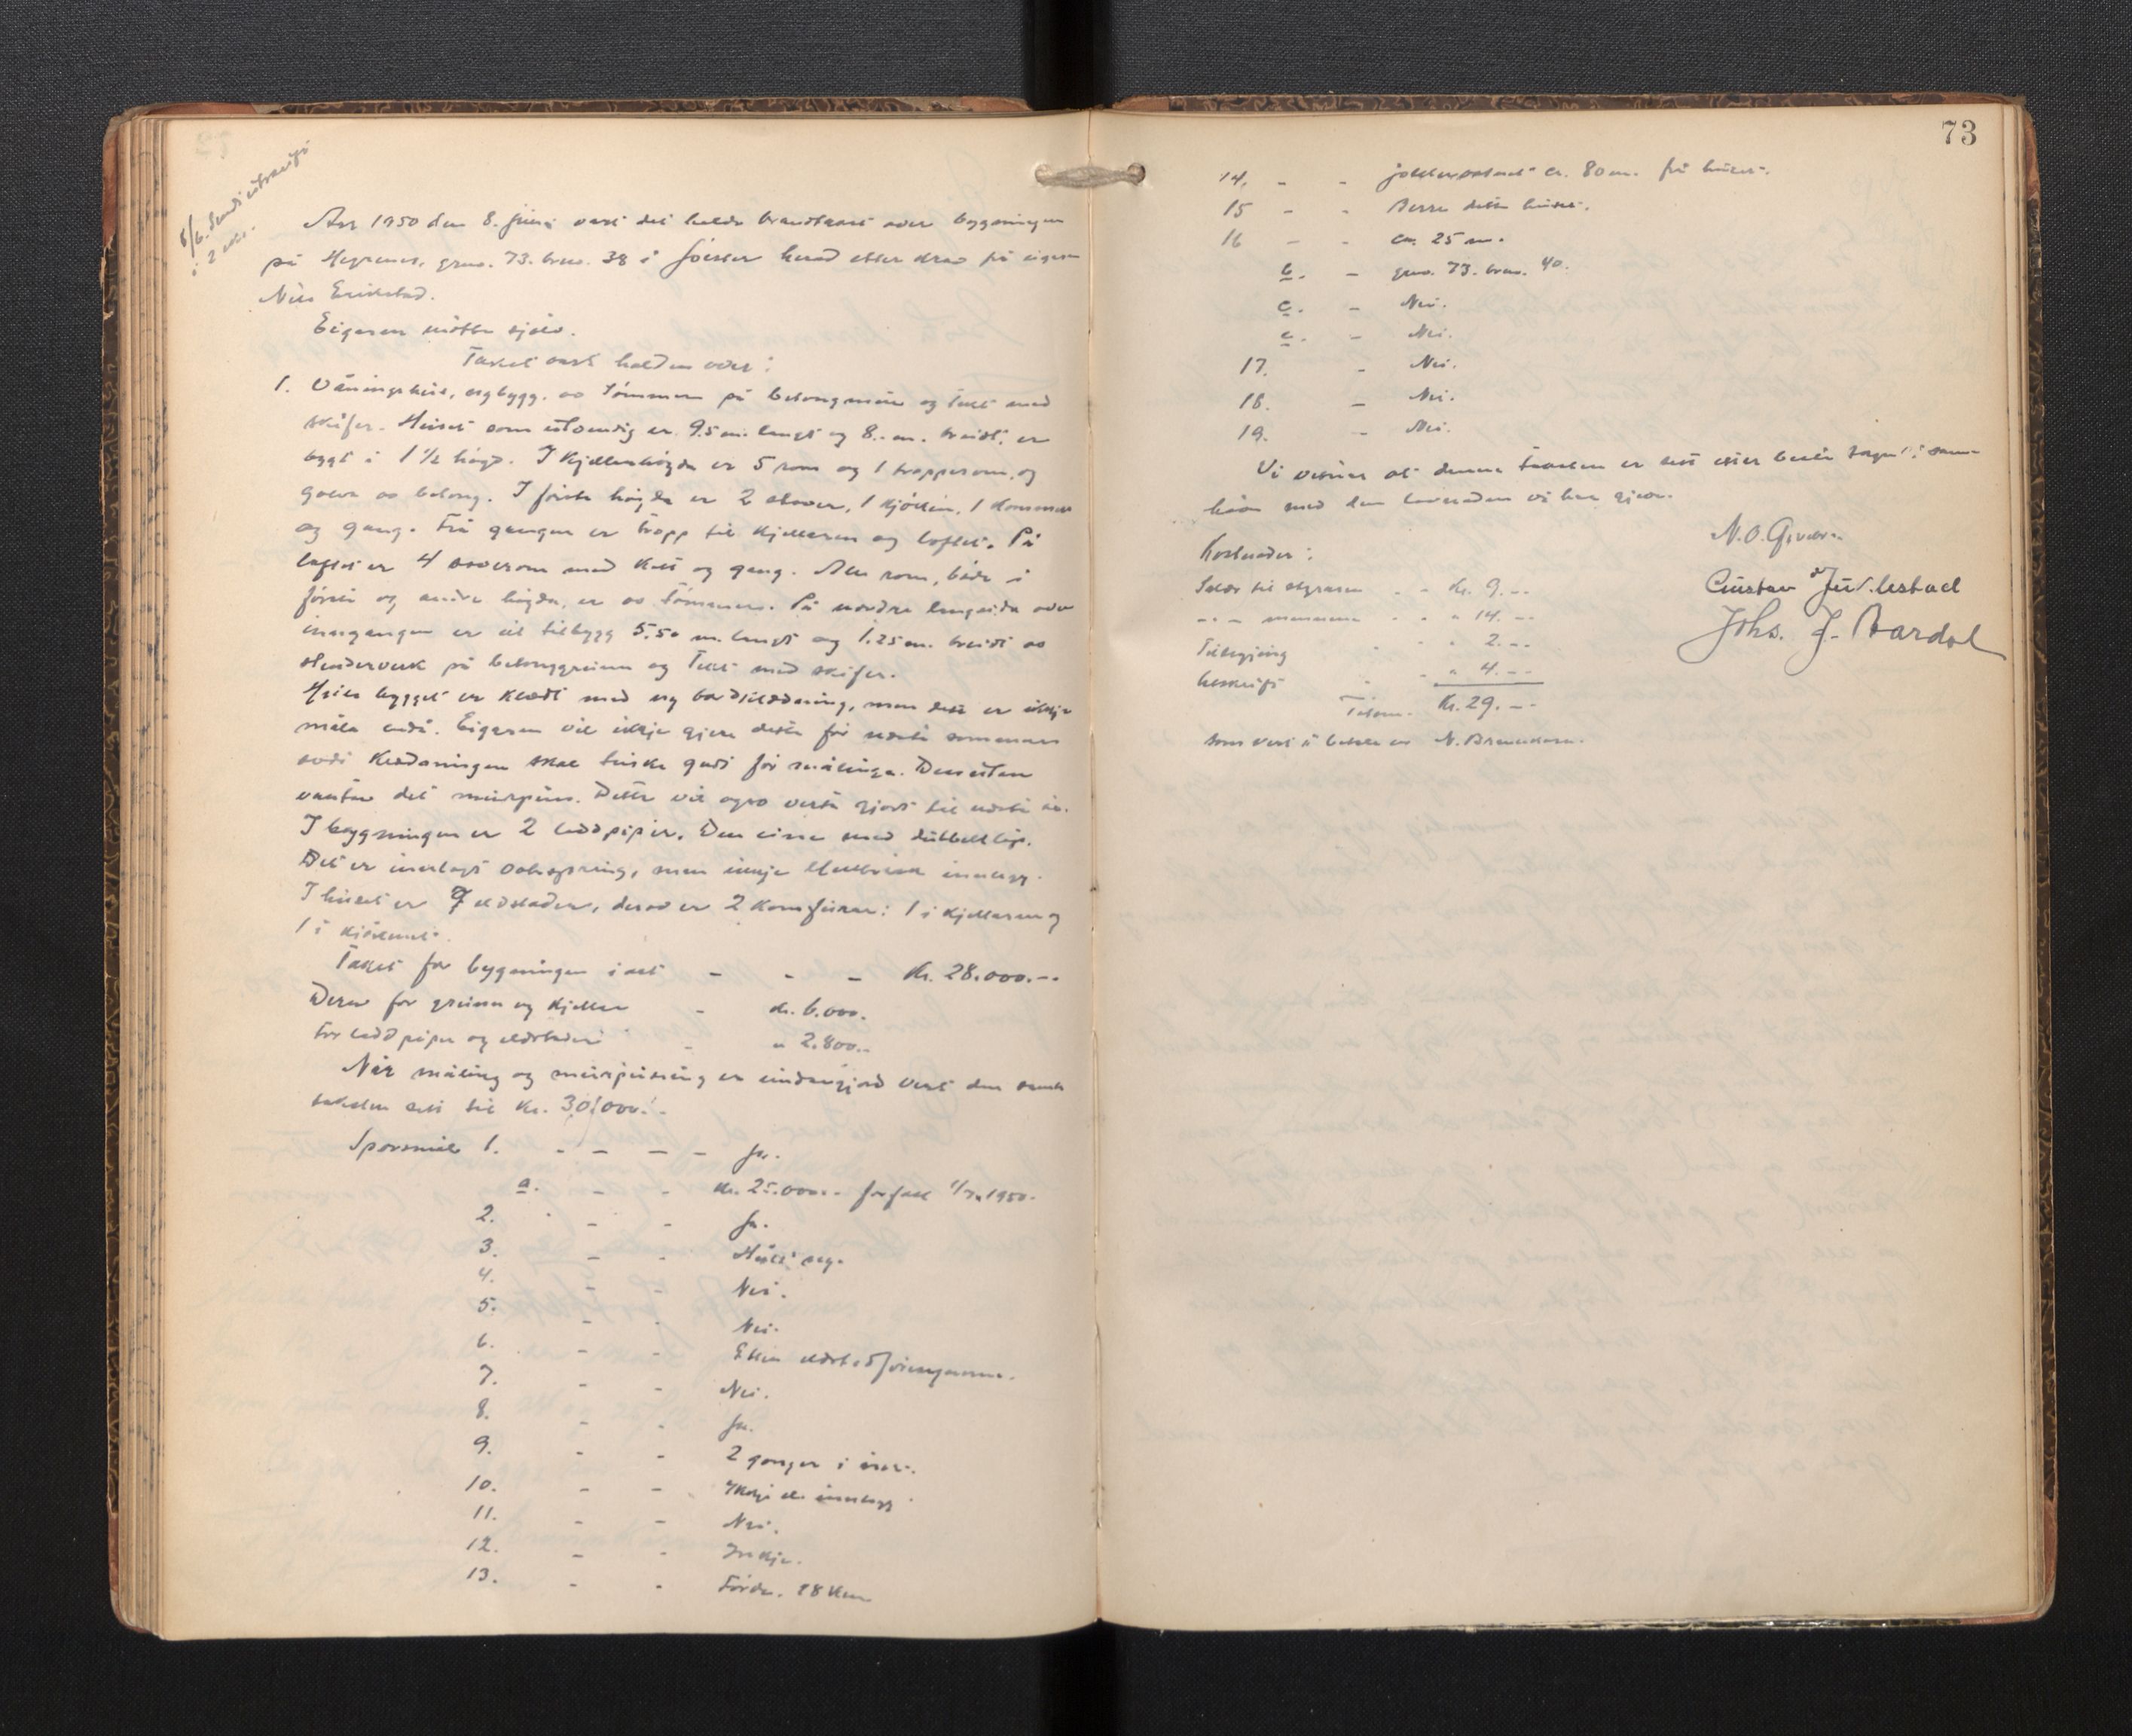 73
8/6. sendt utskrift
i 2 eks.
År 1950 den 8. juni vart det halde brandtakst over bygningen
på Hegrenes, grno. 73. brno. 38 i Jölster herad etter krav frå eigaren
Nils Eikestad.
Eigaren mötte sjølv.
Takst vart halden over:
1. Våningshus, nybygg. av tömmer på betongmur og tekt med
skifer. Huset som utvendig er 9.5 m. langt og 8.- m. breidt, er
bygt i 1 1/2 högd. I kjellarhögda er 5 rom og 1 trapperom, og
golva av betong. I förste högda er 2 stover, 1 kjökken, 1 kammer
og gang. Frå gangen er tropp til kjellaren og loftet. På
loftet er 4 soverom med kott og gang. Alle rom, både i
förste og andre högda, er av tömmer. På nordre langsida over
inngangen er eit tilbygg 5.50 m. langt og 1.25 m. breidt av
stenderverk på betonggrunn og tekt med skifer.
Heile bygget er klædt med ny bordklædning, men dette er ikkje
måla endå. Eigaren vil ikkje gjera dette för neste sommar
avdi klædningen skal turke godt för målinga. Dessutan
vantar det murpuss. Dette vil også verta gjort til neste år.
I bygningen er 2 teddpiper. Den eine med dubbelt löp.
Det er innlagt vatsspring, men ikkje elektrisk innlegg.
I huset er 7 eldstader, derav er 2 komfyrar: 1 i kjellaren og
1 i kjökenet.
Takst for bygningen i alt - - - Kr. 28.000.--
Derav for grunn og kjellar - kr. 6.000.
For teddpiper og eldstader - " 2.800.-
Når måling og murpussing er undangjord vert den samla
taksten sett til Kr. 30.000.-
Sporsmål 1. - - - - Ja.
a. - - kr. 25.000.- forfall 1/7. 1950.
2. - - Ja.
3. - - Huset ny.
4. - - Nei.
5. - - Nei.
6. - - Etter eldstadforingane.
7. - - Nei.
8. - - Ja.
9. - - 2 gonger i året.
10. - - Ikkje el. innlegg
11. - - Nei.
12. - - Inkje.
13. - - Förde. 18 km
14. - - Jolstervatnet ca. 80 m. frå huset.
15 - - Berre dette huset.
16 - - ca. 25 m.
b. - grno. 73. brno. 40.
c. - Nei.
e. - Nei.
17. - Nei.
18. - Nei.
19. - Nei.
Vi vitnar at denne taksten er sett etter beste skjøn i sam-
hæve med den lovnaden vi har gjeve.
N. O. Gjesdal
Gustav J. Ju lestad
Johs. J. Aardal
Kostnader:
Salær til skjrivaren - - kr. 9.--
-- - mennene - - " 14.--
Tilsegjing - - " 2.--
Utskrift - - " 4.--
Tilsam. Kr. 29.--
som vert å betala av N. Brannkasse.